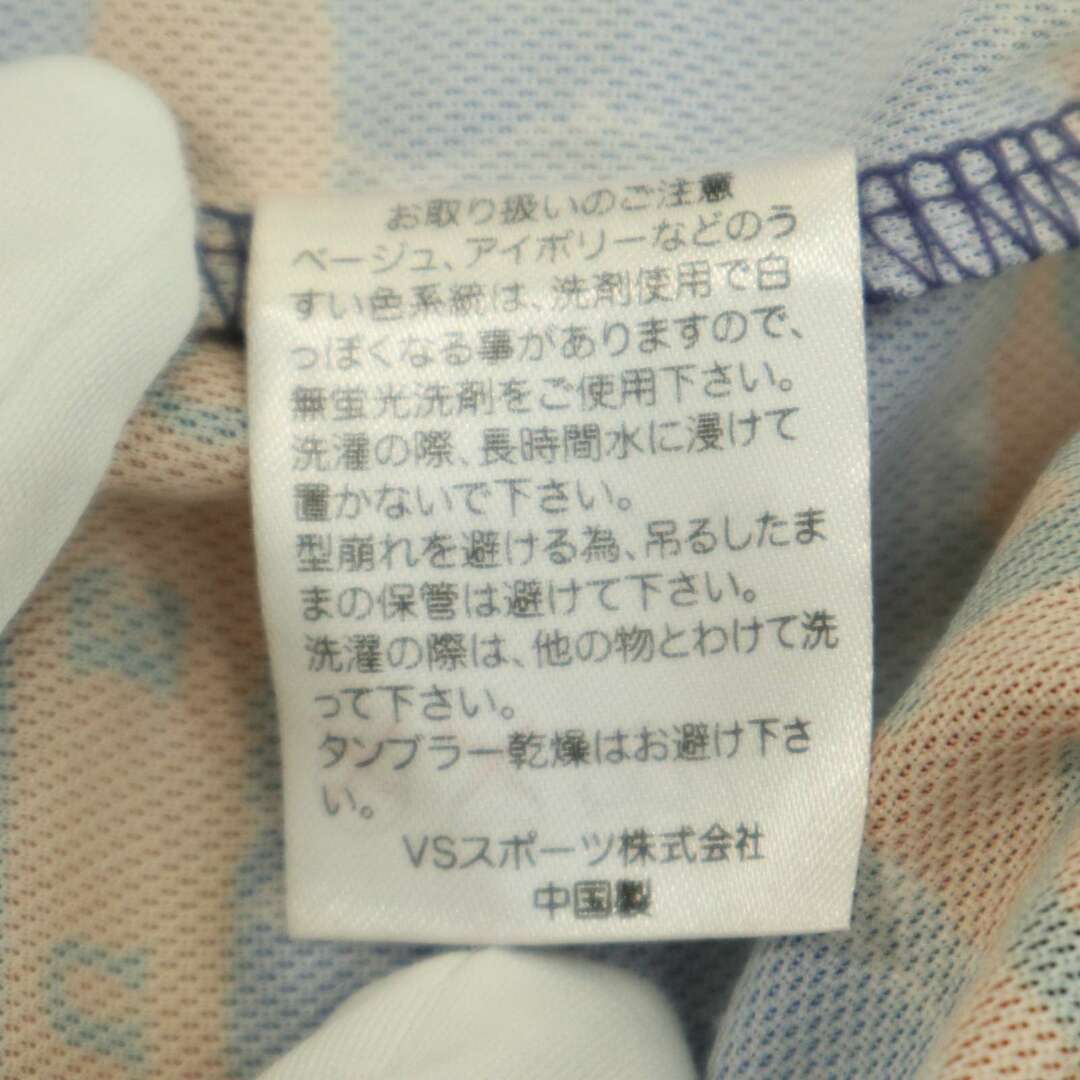 お取り扱いのご注意
ベージュ、アイボリーなどのう
すい色系統は、洗剤使用で白
っぽくなる事がありますので、
無蛍光洗剤をご使用下さい。
洗濯の際、長時間水に浸けて
置かないで下さい。
型崩れを避ける為、吊るしたま
まの保管は避けて下さい。
洗濯の際は、他の物とわけて洗
って下さい。
タンブラー乾燥はお避け下さ
い。
VSスポーツ株式会社
中国製